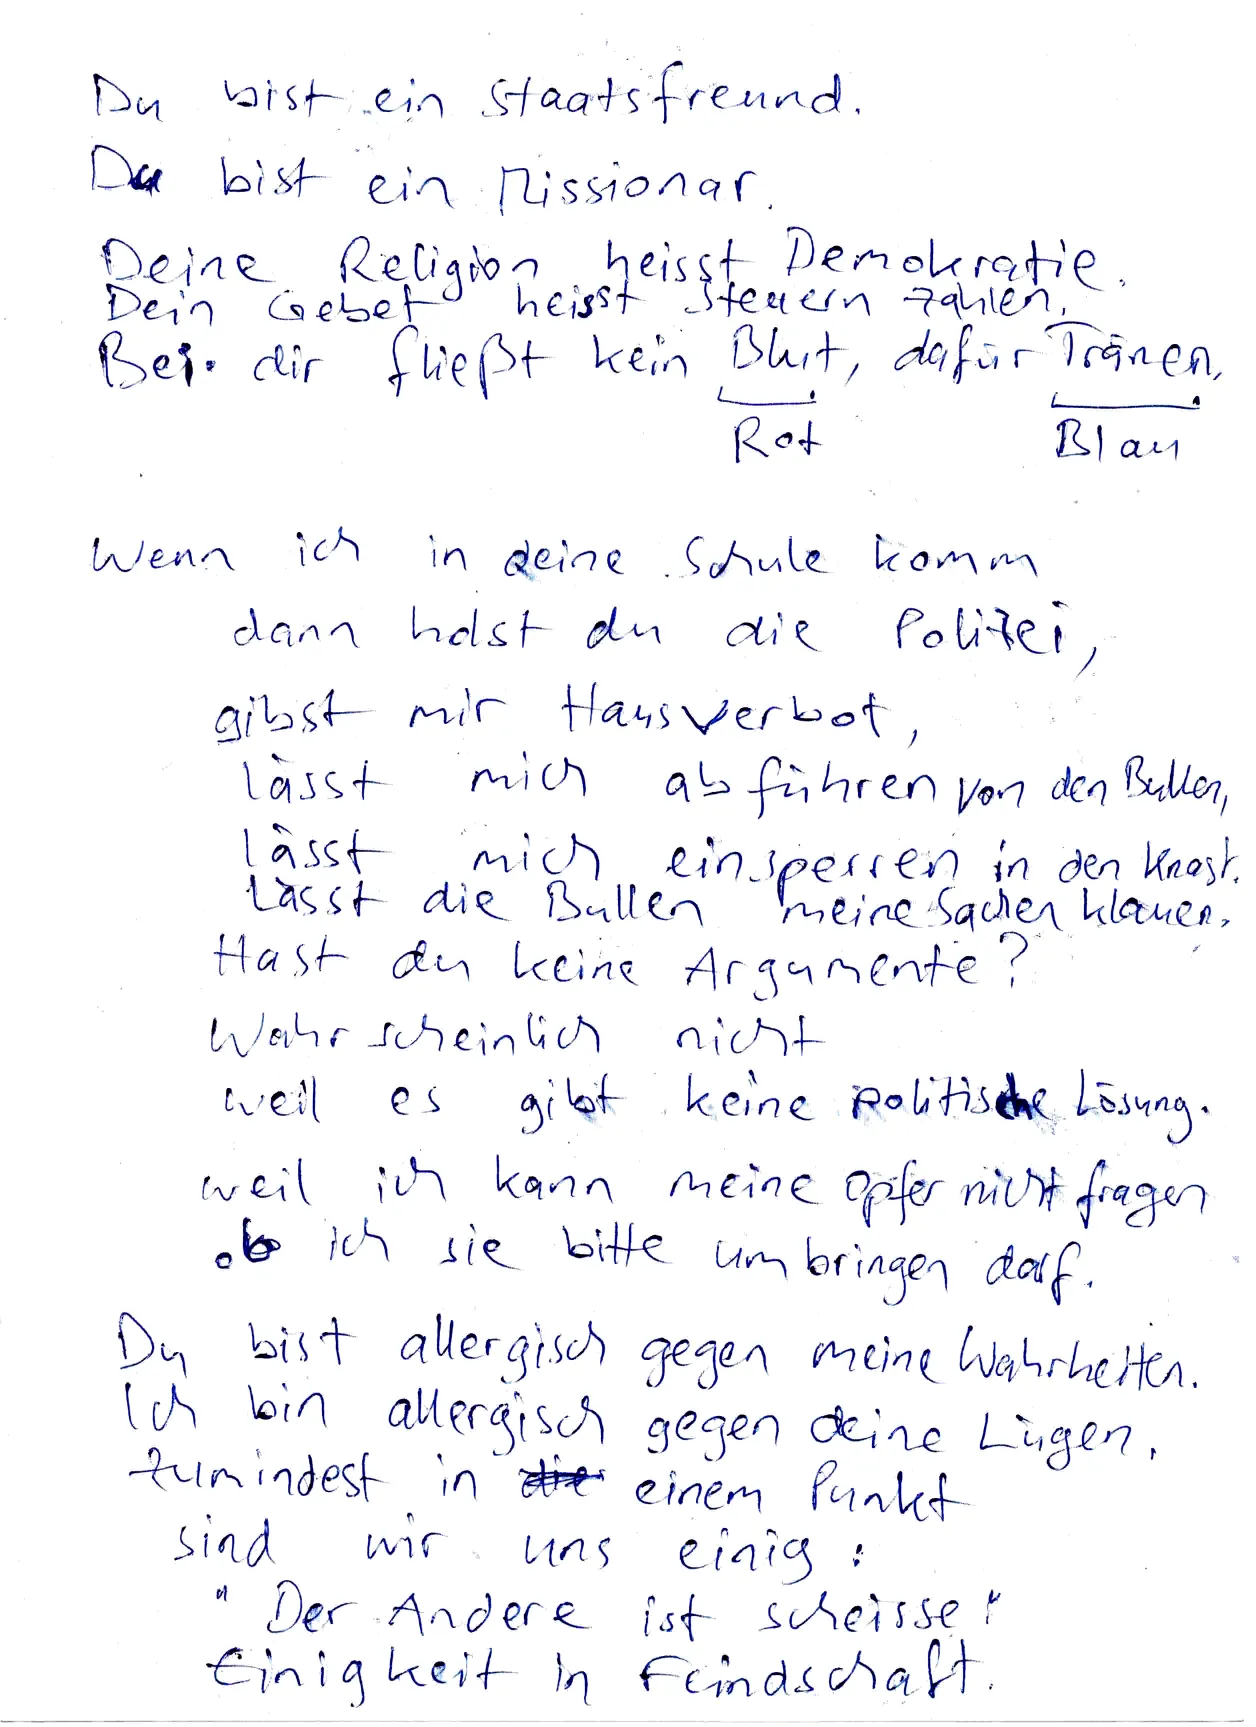 Du bist ein Staatsfreund.
Du bist ein Missionar.
Deine Religion heisst Demokratie.
Dein Gebet heisst Steuern zahlen.
Bei dir fließt kein Blut, dafür Tränen,
Rot Blau
Wenn ich in deine Schule komm
dann holst du die Polizei,
gibst mir Hausverbot,
lässt mich abführen von den Bullen,
lässt mich einsperren in den Knast.
Lässt die Bullen meine Sachen klauen.
Hast du keine Argumente?
Wahrscheinlich nicht
weil es gibt keine politische Lösung.
weil ich kann meine Opfer nicht fragen
ob ich sie bitte umbringen darf.
Du bist allergisch gegen meine Wahrheiten.
Ich bin allergisch gegen deine Lügen,
zumindest in die einem Punkt
sind wir uns einig:
"Der Andere ist scheisse"
Einigkeit in Feindschaft.